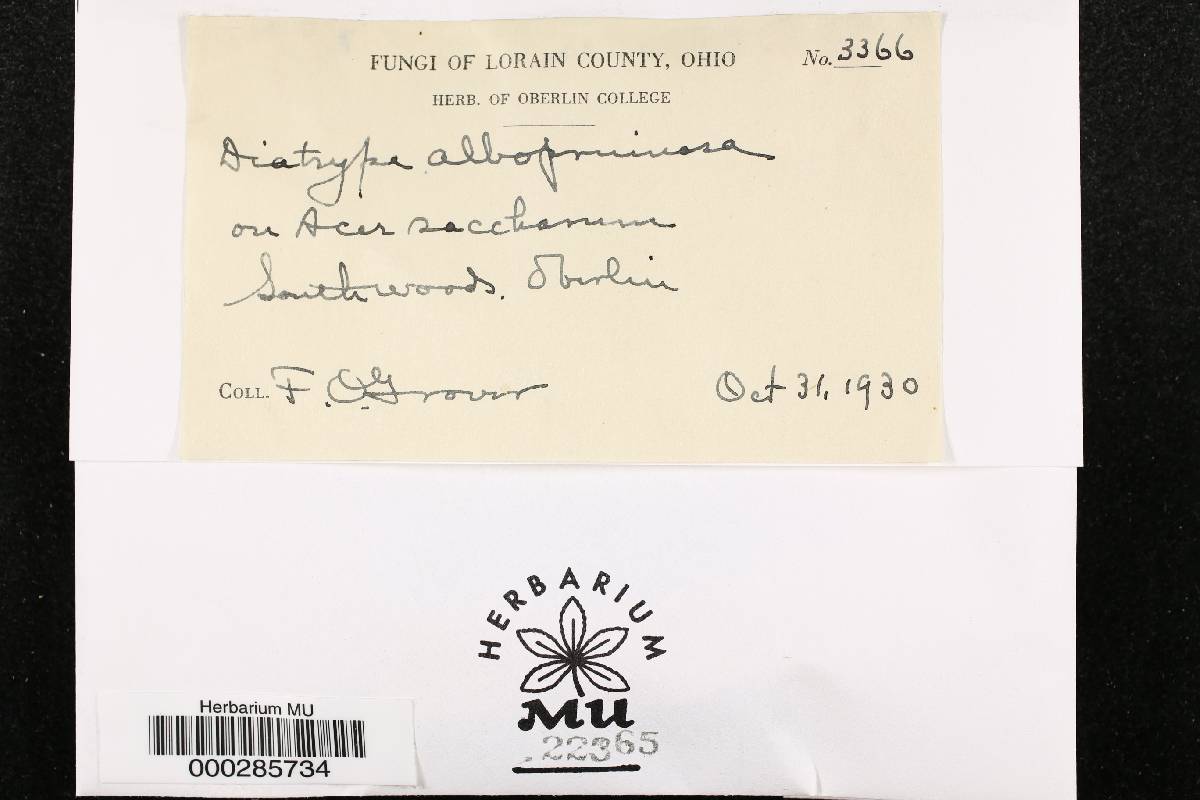 FUNGI OF LORAIN COUNTY, OHIO No. 3366
HERB. OF OBERLIN COLLEGE
Diatrype albopruinosa
on Acer saccharum
South woods. Oberlin
COLL. F. O. Grover Oct 31, 1930
HERBARIUM
MU
22365
Herbarium MU
000285734